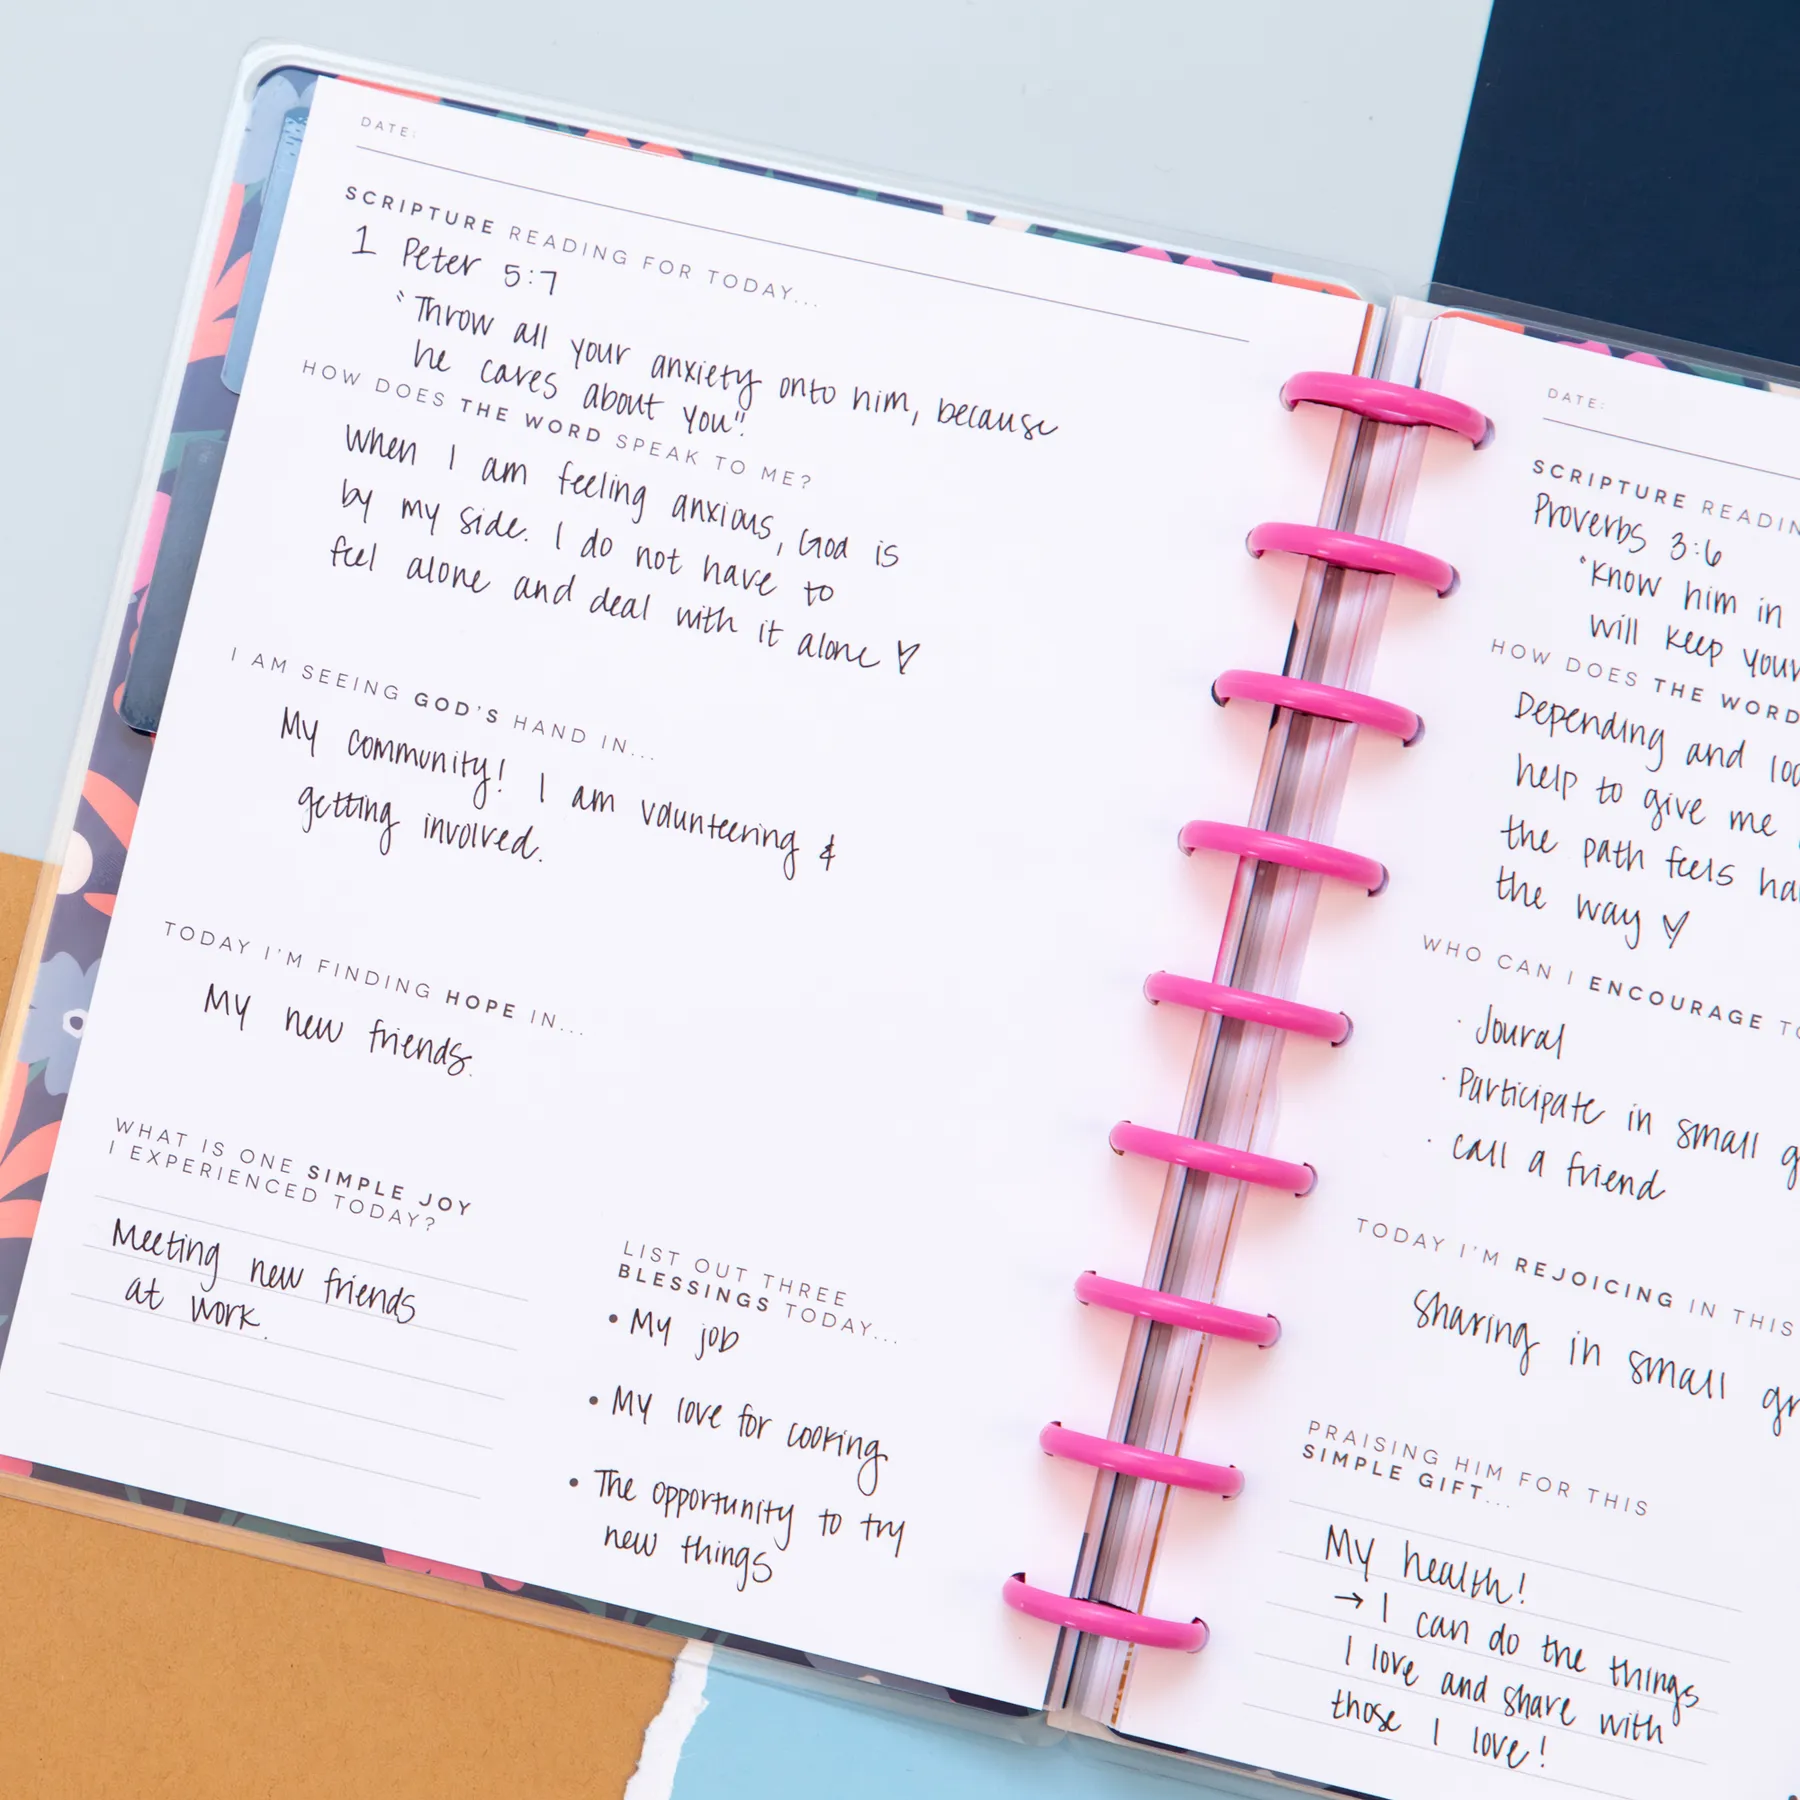 DATE:
SCRIPTURE READING FOR TODAY...
1 Peter 5:7
"Throw all your anxiety onto him, because
he cares about you".
HOW DOES THE WORD SPEAK TO ME?
When I am feeling anxious, God is
by my side. I do not have to
feel alone and deal with it alone ♡
I AM SEEING GOD'S HAND IN...
My community! I am volunteering &
getting involved.
TODAY I'M FINDING HOPE IN...
My new friends.
WHAT IS ONE SIMPLE JOY
I EXPERIENCED TODAY?
Meeting new friends
at work.
LIST OUT THREE
BLESSINGS TODAY...
• My job
• My love for cooking
• The opportunity to try
new things
DATE:
SCRIPTURE
Proverbs 3:6
"Know him in
will keep
HOW DOES THE WORD
Depending and
help to give me
the path feels
the way ♡
WHO CAN I ENCOURAGE
· Joural
· Participate in small
· call a friend
TODAY I'M REJOICING IN THIS
Sharing in small
PRAISING HIM FOR THIS
SIMPLE GIFT...
My health!
→ I can do the things
I love and share with
those I love!